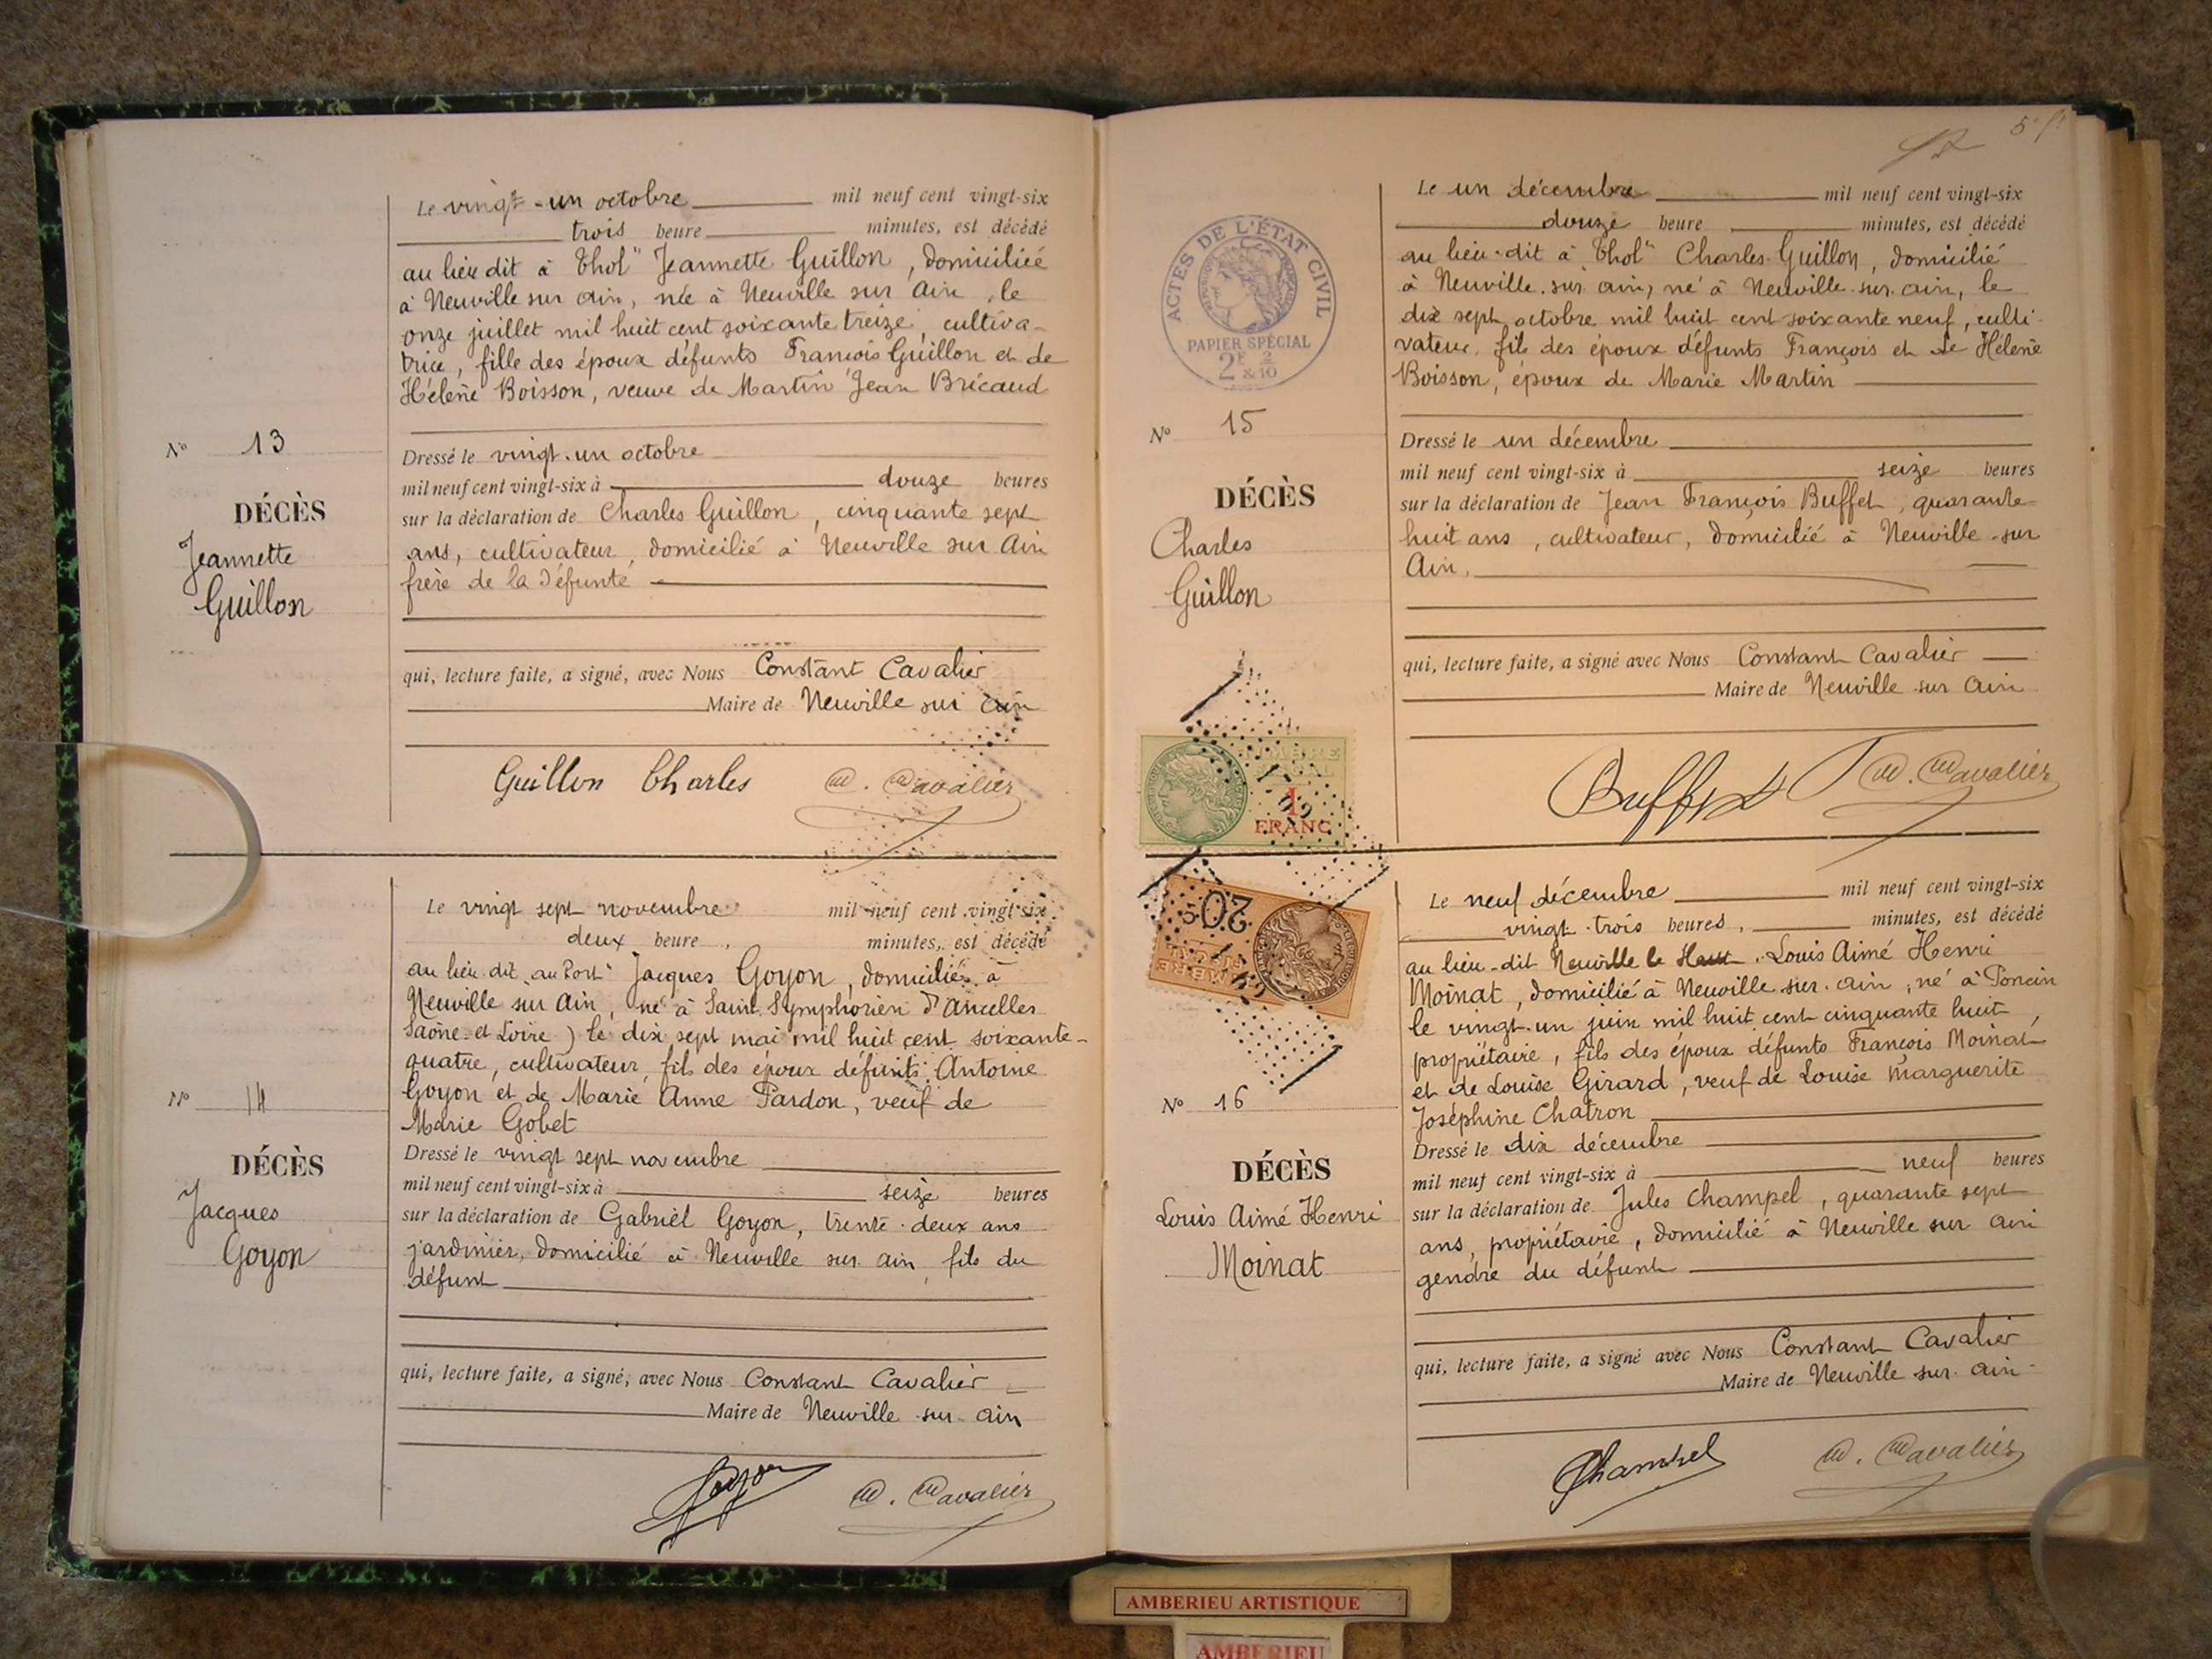 Le vingt-un octobre mil neuf cent vingt-six
trois heure minutes, est décédé
au lieu dit à "Thol" Jeannette Guillon, domiciliée
à Neuville sur ain, née à Neuville sur Ain, le
onze juillet mil huit cent soixante treize, cultiva-
trice, fille des époux défunts François Guillon et de
Hélène Boisson, veuve de Martin Jean Bricaud
No 13
DÉCÈS
Jeannette
Guillon
Dressé le vingt-un octobre
mil neuf cent vingt-six à douze heures
sur la déclaration de Charles Guillon, cinquante sept
ans, cultivateur, domicilié à Neuville sur Ain
frère de la défunte
qui, lecture faite, a signé, avec Nous Constant Cavalier
Maire de Neuville sur ain
Guillon Charles C. Cavalier
Le vingt sept novembre mil neuf cent vingt-six
deux heure, minutes, est décédé
au lieu dit "au Port" Jacques Goyon, domicilié à
Neuville sur Ain, né à Saint Symphorien d'Ancelles
Saône-et-Loire) le dix sept mai mil huit cent soixante-
quatre, cultivateur, fils des époux défunts Antoine
Goyon et de Marie Anne Pardon, veuf de
Marie Gobet
No 14
DÉCÈS
Jacques
Goyon
Dressé le vingt sept novembre
mil neuf cent vingt-six à seize heures
sur la déclaration de Gabriel Goyon, trente-deux ans
jardinier, domicilié à Neuville sur ain, fils du
défunt
qui, lecture faite, a signé, avec Nous Constant Cavalier
Maire de Neuville sur ain
Goyon C. Cavalier
ACTES DE L'ÉTAT CIVIL
PAPIER SPÉCIAL
2F 2/10
Le un décembre mil neuf cent vingt-six
douze heure minutes, est décédé
au lieu-dit à "Thol" Charles Guillon, domicilié
à Neuville sur ain, né à Neuville sur ain, le
dix sept octobre mil huit cent soixante neuf, culti-
vateur, fils des époux défunts François et de Hélène
Boisson, époux de Marie Martin
No 15
DÉCÈS
Charles
Guillon
Dressé le un décembre
mil neuf cent vingt-six à seize heures
sur la déclaration de Jean François Buffet, quarante
huit ans, cultivateur, domicilié à Neuville-sur
Ain,
qui, lecture faite, a signé avec Nous Constant Cavalier
Maire de Neuville sur ain
Buffet C. Cavalier
1
FRANC
20
Le neuf décembre mil neuf cent vingt-six
vingt-trois heures, minutes, est décédé
au lieu-dit Neuville le Haut, Louis Aimé Henri
Moinat, domicilié à Neuville sur ain, né à Poncin
le vingt-un juin mil huit cent cinquante huit,
propriétaire, fils des époux défunts François Moinat
et de Louise Girard, veuf de Louise Marguerite
Joséphine Chatron
No 16
DÉCÈS
Louis Aimé Henri
Moinat
Dressé le dix décembre
mil neuf cent vingt-six à neuf heures
sur la déclaration de Jules Champel, quarante sept
ans, propriétaire, domicilié à Neuville sur ain
gendre du défunt
qui, lecture faite, a signé avec Nous Constant Cavalier
Maire de Neuville sur ain
Champel C. Cavalier
AMBERIEU ARTISTIQUE
AMBERIEU